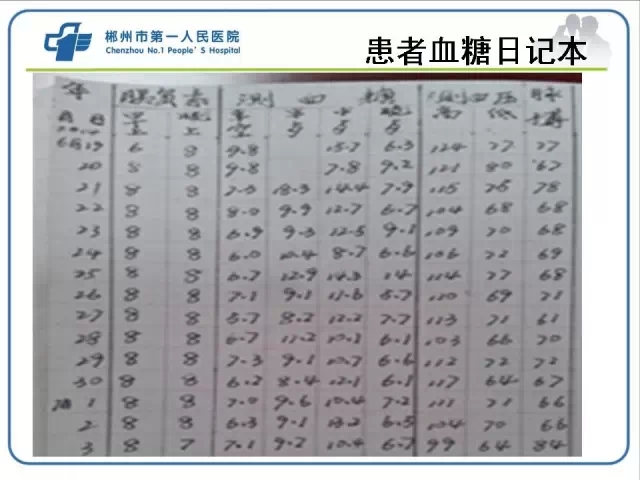 郴州市第一人民医院
Chenzhou No.1 People'S Hospital
患者血糖日记本
年 胰岛素 测血糖 测血压 脉
月日 早 晚 早 高 低 搏
上 上 空
6月19 6 8 9.8 15.7 6.3 124 77 77
20 8 8 9.8 7.8 9.2 121 80 67
21 8 8 7.5 10.3 14.4 7.9 115 75 78
22 8 8 8.0 9.9 12.7 6.7 104 68 68
23 8 8 6.9 9.3 12.5 9.1 109 70 68
24 8 8 6.0 10.4 8.7 6.6 106 72 69
25 8 8 6.7 12.9 14.3 14 114 77 68
26 8 8 7.1 9.1 11.6 5.7 110 69 71
27 8 8 5.7 8.2 12.2 7.7 113 71 61
28 8 8 6.7 11.2 10.1 6.1 103 66 70
29 8 8 7.3 9.1 10.7 6.6 112 72 72
30 8 8 6.2 8.4 12.1 6.1 117 64 67
1 8 8 7.0 9.6 10.4 7.2 111 71 66
2 8 8 6.3 9.1 13.2 6.5 104 70 66
3 8 7 7.1 9.2 10.4 6.7 99 64 84